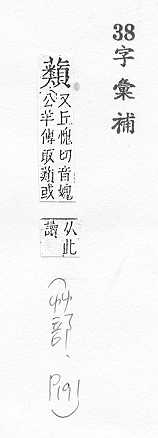 38 字彙補
蘱
又丘愧切音媿
公羊傳取蘱或
从此
讀
(艸部. P191)